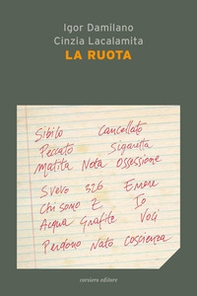 Igor Damilano
Cinzia Lacalamita
LA RUOTA
Sibilo Cancellato
Peccato Sigaretta
Matita Nota Ossessione
Svevo 326 Errore
Chi sono E Io
Acqua Grafite Voci
Perdono Nato coscienza